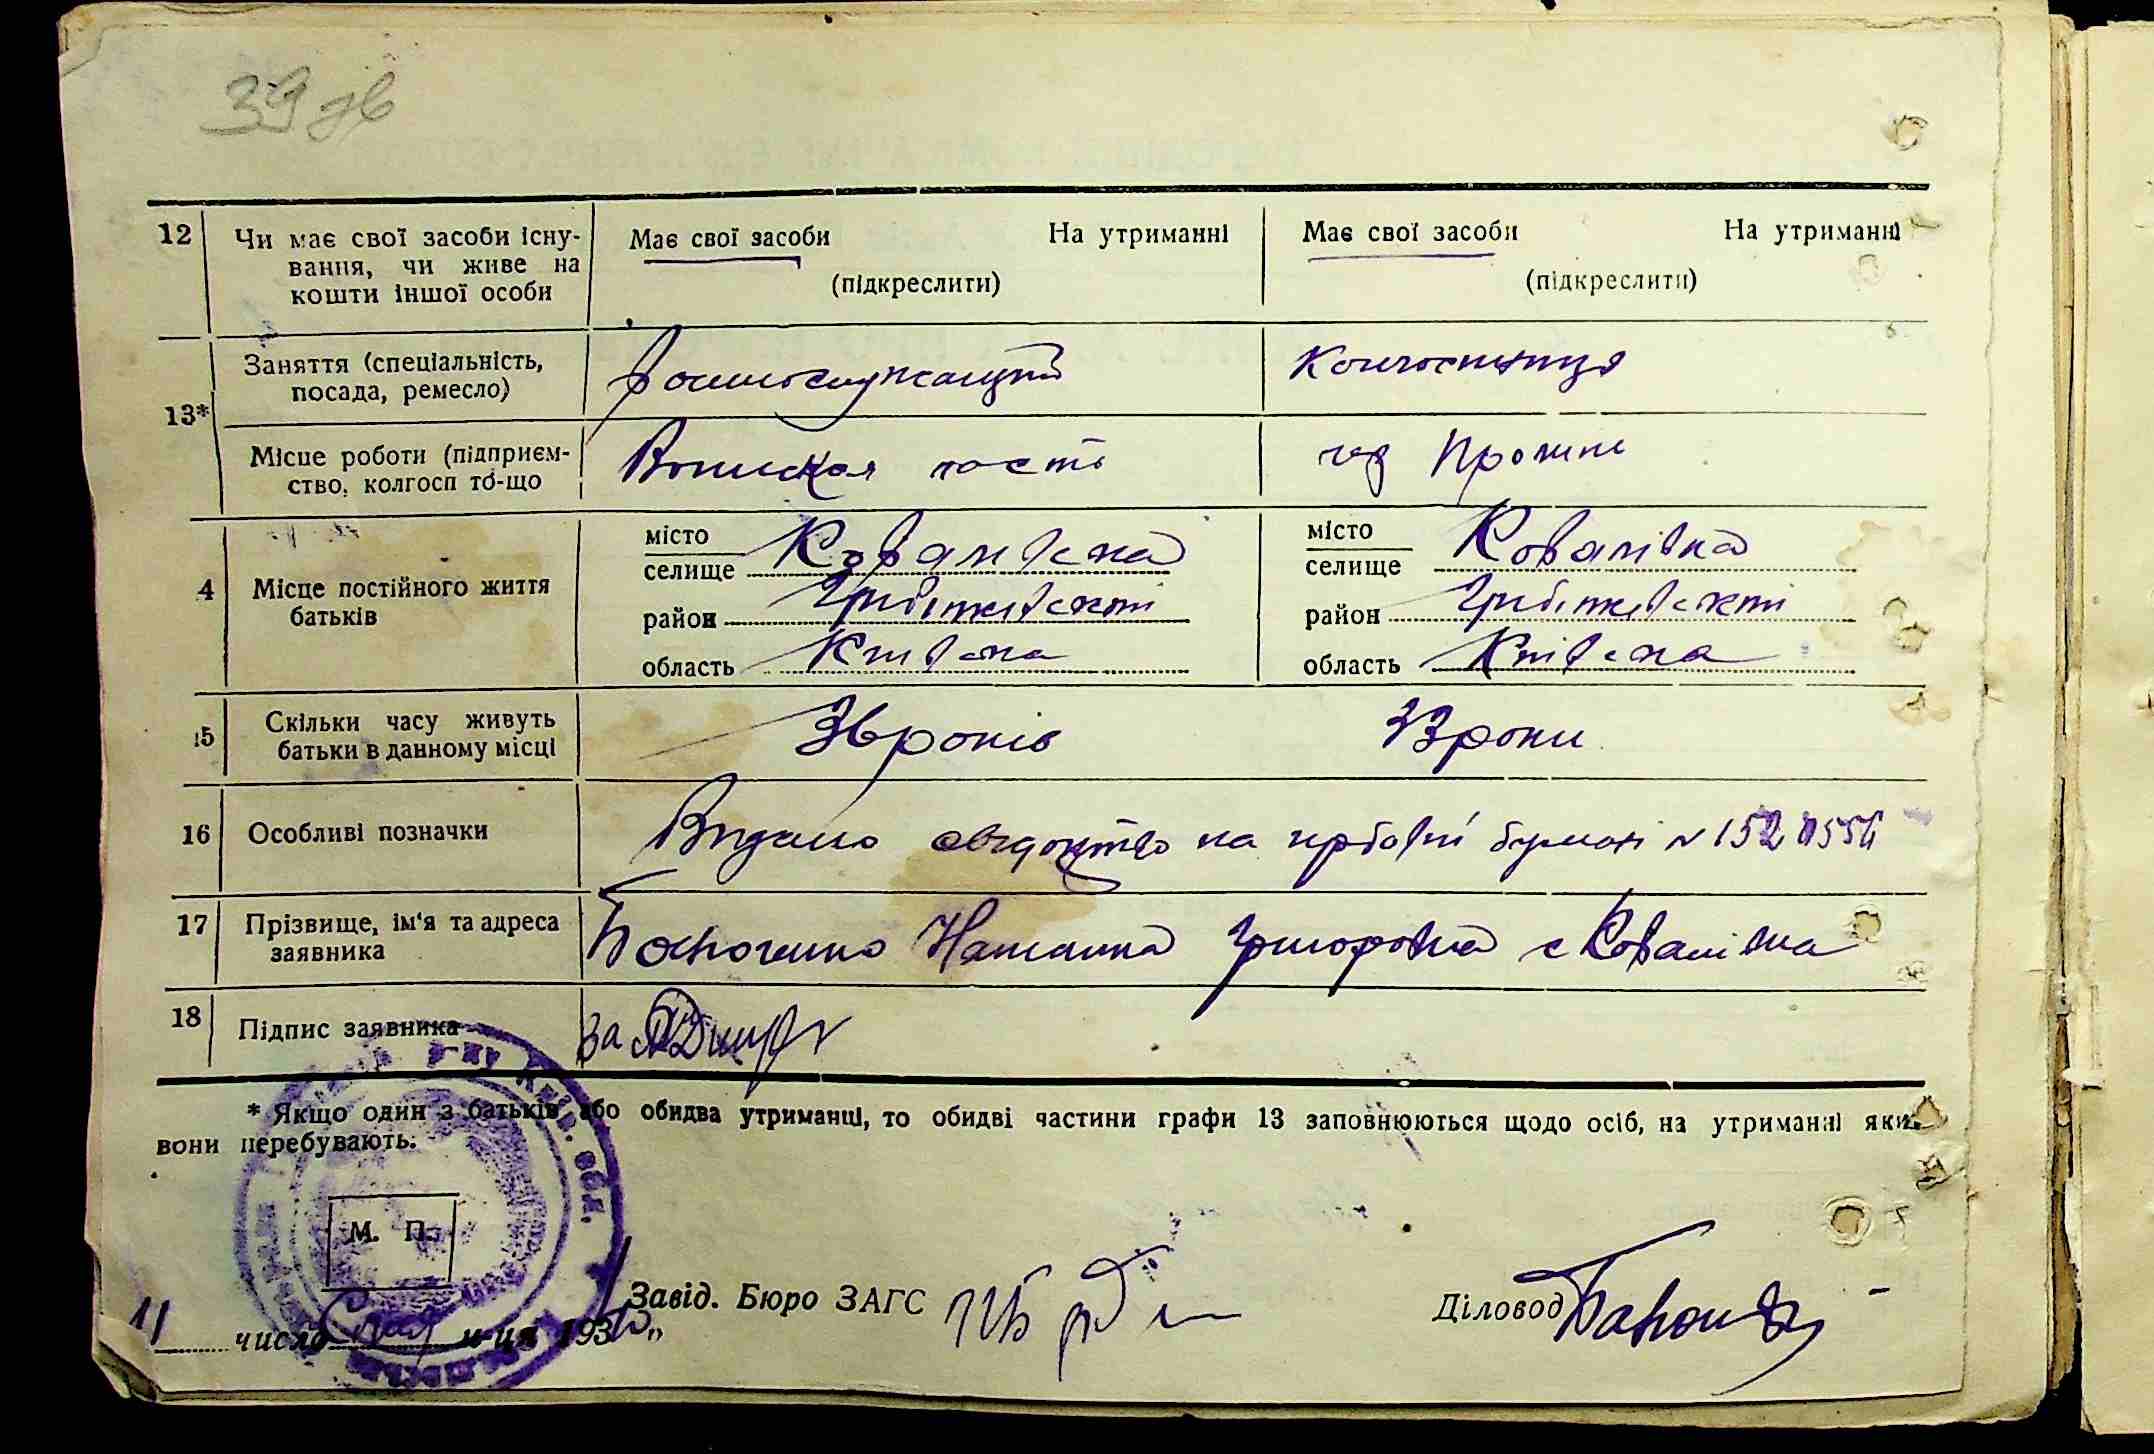 39 зв
12 Чи має свої засоби існу- Має свої засоби На утриманні Має свої засоби На утриманні
вання, чи живе на (підкреслити) (підкреслити)
кошти іншої особи
13* Заняття (спеціальність, Военнослужащий Колгоспниця
посада, ремесло)
Місце роботи (підприєм- Воинская часть
ство, колгосп то-що
4 Місце постійного життя місто місто
батьків селище Ковалівка селище Ковалівка
район Гребінківській район Гребінківській
область Київська область Київська
15 Скільки часу живуть 36 років 33 роки
батьки в данному місці
16 Особливі позначки Видано свідоцтво на гербовій бумазі №
17 Прізвище, ім'я та адреса Наталка Григоровна с Ковалівка
заявника
18 Підпис заявника За
* Якщо один з батьків або обидва утриманці, то обидві частини графи 13 заповнюються щодо осіб, на утриманні яких
вони перебувають.
р-ну Київ. обл.
М. П.
11 число Січня м-ця 19
Завід. Бюро ЗАГС
Діловод